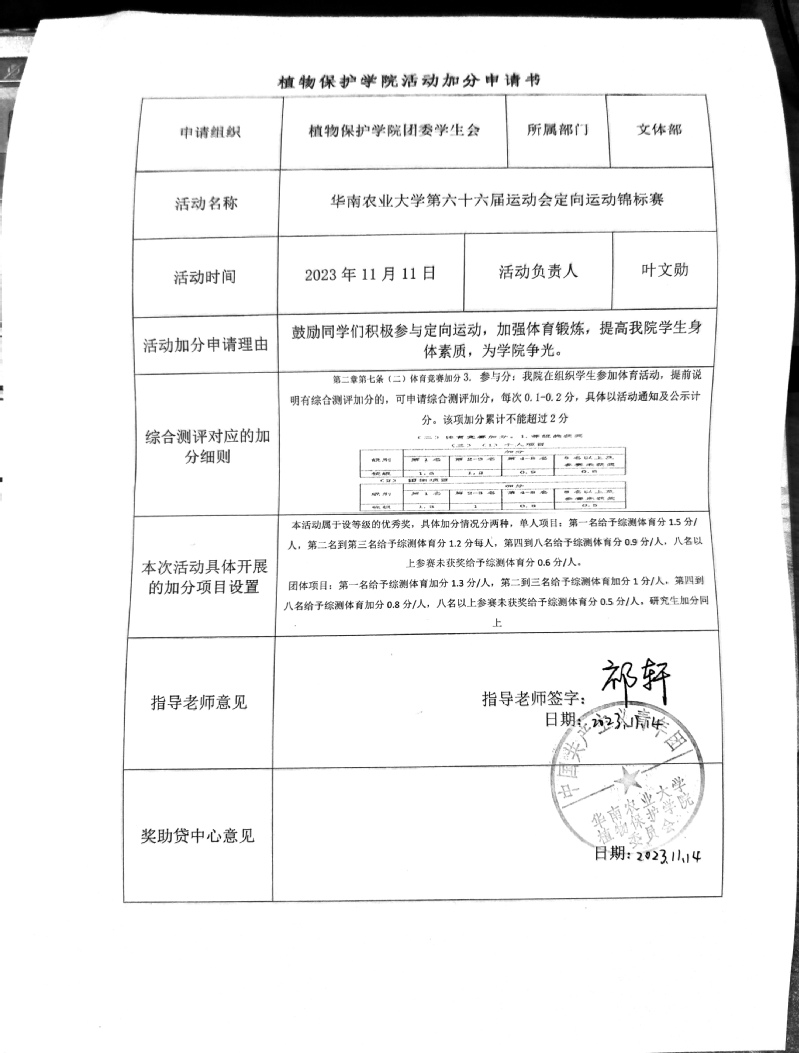 植物保护学院活动加分申请书
申请组织 植物保护学院团委学生会 所属部门 文体部
活动名称 华南农业大学第六十六届运动会定向运动锦标赛
活动时间 2023 年 11 月 11 日 活动负责人 叶文勋
活动加分申请理由
鼓励同学们积极参与定向运动，加强体育锻炼，提高我院学生身
体素质，为学院争光。
综合测评对应的加
分细则
第二章第七条（二）体育竞赛加分 3. 参与分：我院在组织学生参加体育活动，提前说
明有综合测评加分的，可申请综合测评加分，每次 0.1-0.2 分，具体以活动通知及公示计
分。该项加分累计不能超过 2 分
（二）体育竞赛加分：1.等级的获奖
（1）个人项目
加分
级别 第 1 名 第 2-3 名 第 4-8 名 8 名以上及
参赛未获奖
校级 1.5 1.2 0.9 0.6
（2）团体项目
加分
级别 第 1 名 第 2-3 名 第 4-8 名 8 名以上及
参赛未获奖
校级 1.3 1 0.8 0.5
本次活动具体开展
的加分项目设置
本活动属于设等级的优秀奖，具体加分情况分两种，单人项目：第一名给予综测体育分 1.5 分/
人，第二名到第三名给予综测体育分 1.2 分每人，第四到八名给予综测体育分 0.9 分/人，八名以
上参赛未获奖给予综测体育分 0.6 分/人。
团体项目：第一名给予综测体育加分 1.3 分/人，第二到三名给予综测体育加分 1 分/人，第四到
八名给予综测体育加分 0.8 分/人，八名以上参赛未获奖给予综测体育分 0.5 分/人，研究生加分同
上
指导老师意见
指导老师签字：祁轩
日期：2023.11.14
中国共产主义青年团
华南农业大学
植物保护学院
委员会
奖助贷中心意见
日期：2023.11.14